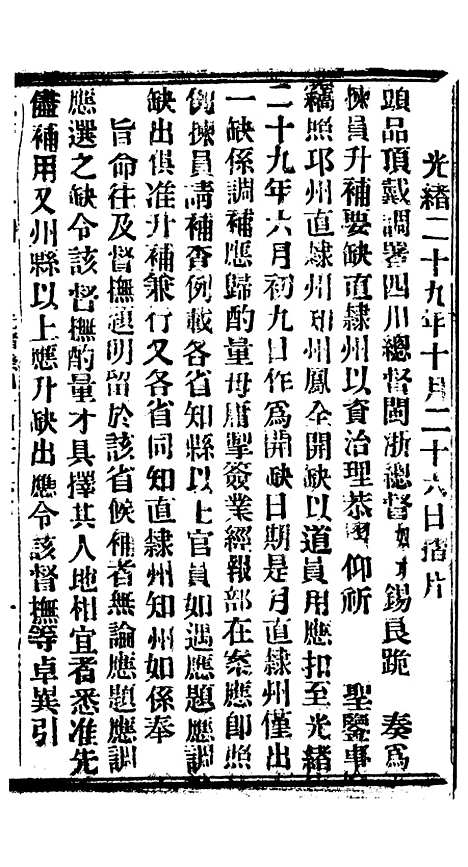 光緒二十九年十月二十六日摺片
頭品頂戴調署四川總督閩浙總督奴才錫良跪 奏爲
揀員升補要缺直隸州以資治理恭摺仰祈 聖鑒事
竊照邛州直隸州知州鳳全開缺以道員用應扣至光緒
二十九年六月初九日作爲開缺日期是月直隸州僅出
一缺係調補應歸酌量毋庸掣簽業經報部在案應卽照
例揀員請補查例載各省知縣以上官員如遇應題應調
缺出俱准升補兼行又各省同知直隸州知州如係奉
旨命往及督撫題明留於該省候補者無論應題應調
應選之缺令該督撫酌量才具擇其人地相宜者悉准先
儘補用又州縣以上應升缺出應令該督撫等卓異引